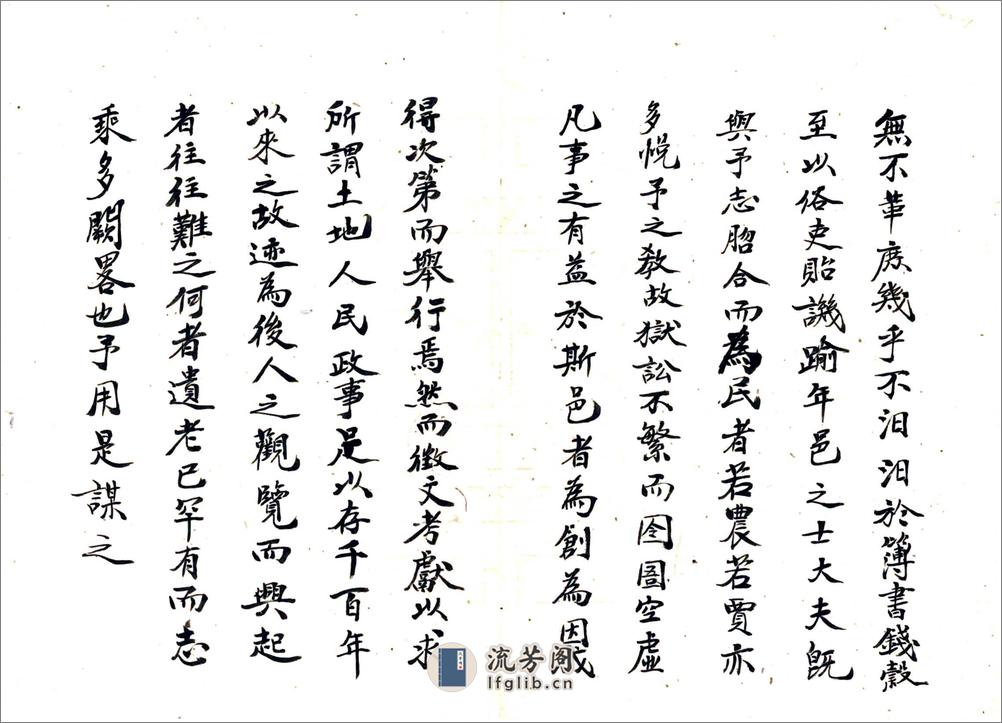 無不華庶幾乎不汨汨於簿書錢穀
至以俗吏貽譏踰年邑之士大夫既
與予志脗合而為民者若農若賈亦
多悅予之教故獄訟不繁而圄空虛
凡事之有益於斯邑者為創為因咸
得次第而舉行焉然而徵文考獻以求
所謂土地人民政事是以存千百年
以來之故迹為後人之觀覽而興起
者往往難之何者遺老已罕有而志
乘多闕畧也予用是謀之
流芳阁
lfglib.cn